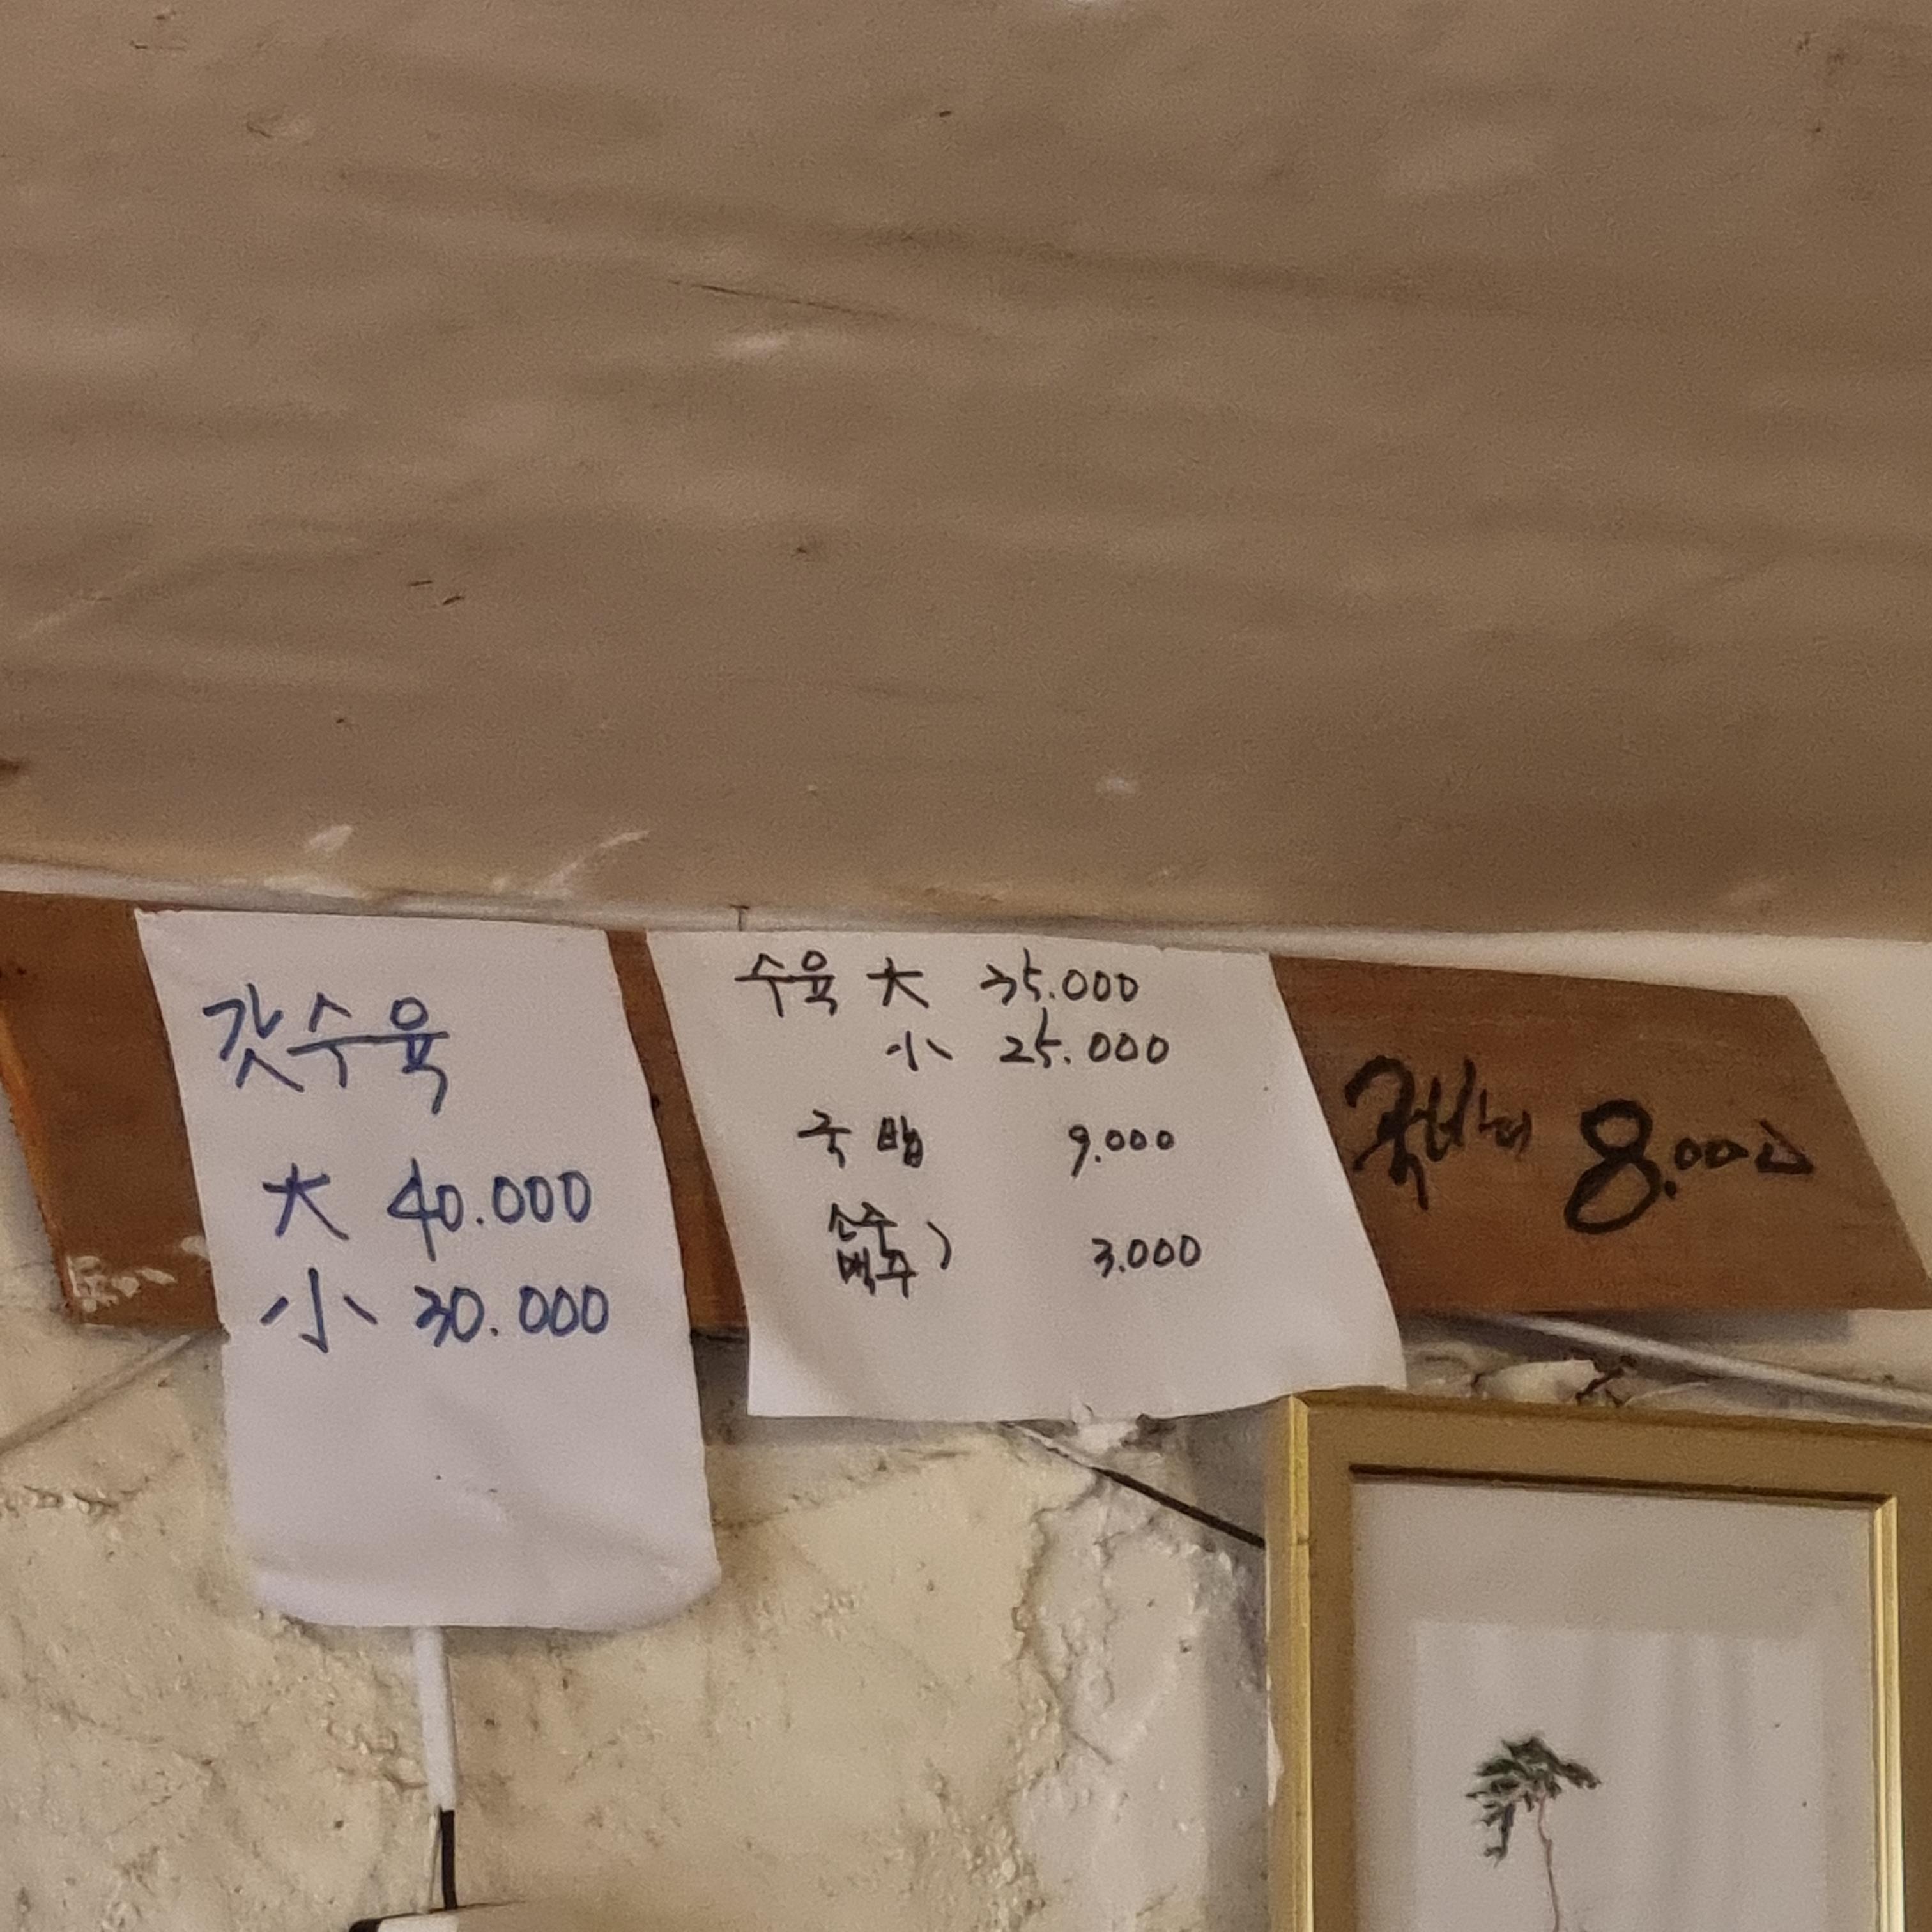 갓수육
大 40.000
小 30.000
수육 大 35.000
小 25.000
국 밥 9.000
소주
맥주 ) 3.000
8.000